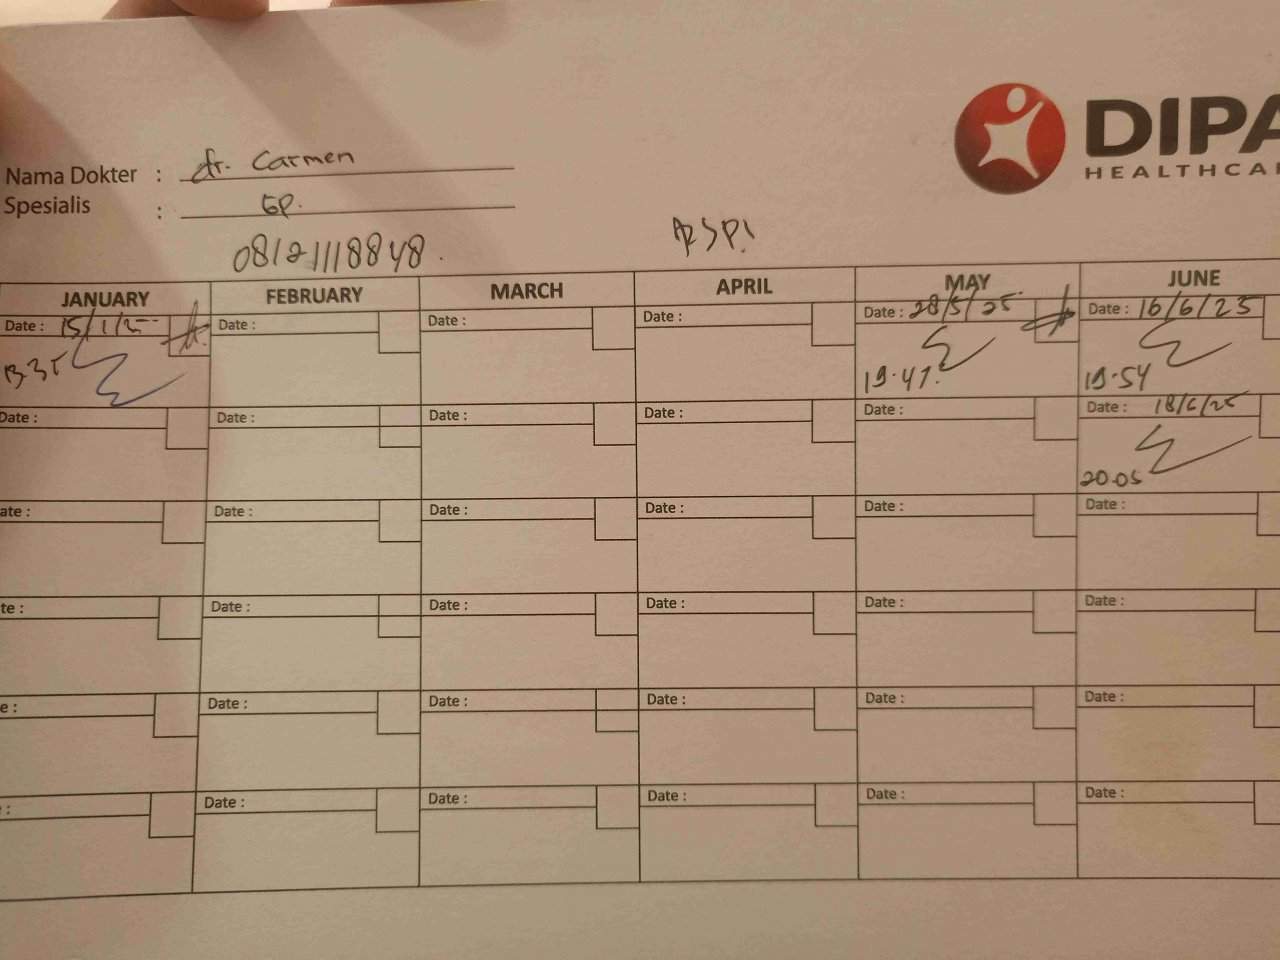 DIPA
HEALTHCA
Nama Dokter : dr. Carmen
Spesialis : Sp.
08121118848.
RSPI
JANUARY FEBRUARY MARCH APRIL MAY JUNE
Date : 15/1/25 Date : Date : Date : Date : 28/5/25 Date : 16/6/25
13.35 19.47. 19.54
Date : Date : Date : Date : Date : Date : 18/6/25
20.05
ate : Date : Date : Date : Date : Date :
te : Date : Date : Date : Date : Date :
e : Date : Date : Date : Date : Date :
: Date : Date : Date : Date : Date :